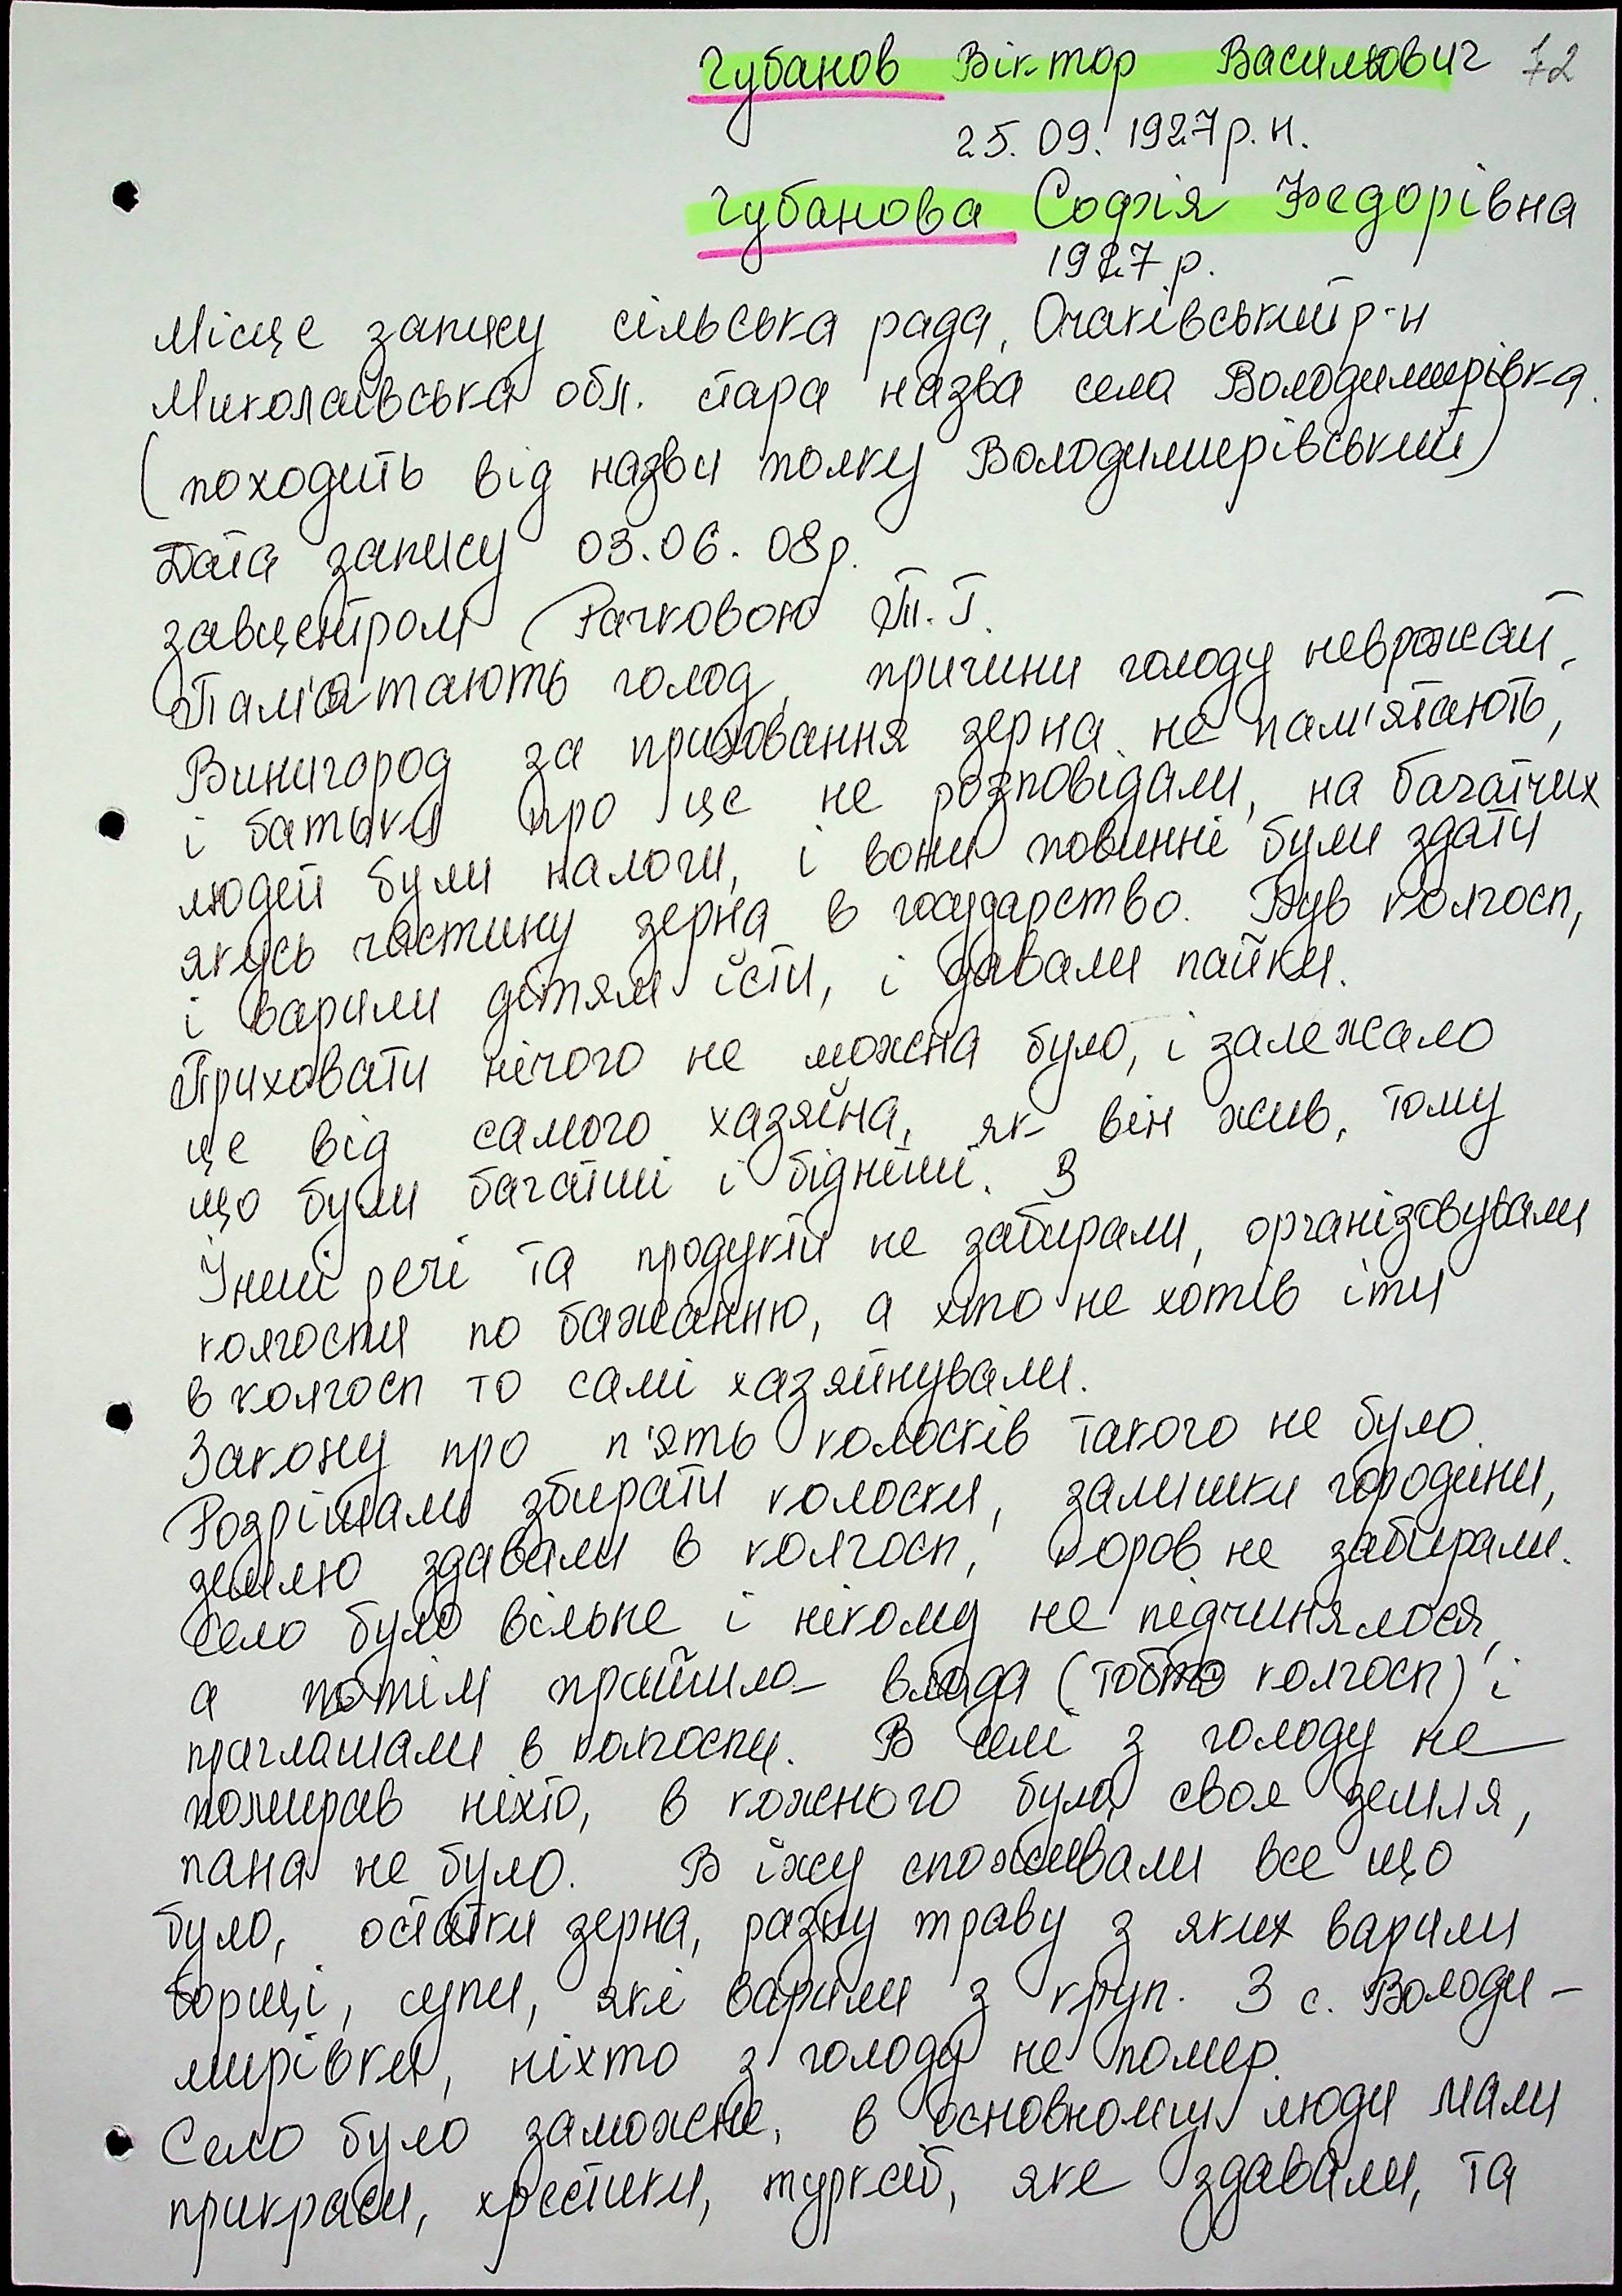 Губанов Віктор Васильович 72
25.09.1927р.н.
Губанова Софія Федорівна
1927р.
Місце запису сільська рада, Очаківський р-н
Миколаївська обл. стара назва села Володимирівка.
(походить від назви полку Володимирівський)
Дата запису 03.06.08р.
завцентром Рачковою Т.Г.
Пам'ятають голод, причини голоду неврожай.
Винигород за приховання зерна не пам'ятають,
і батьки про це не розповідали, на багатших
людей були налоги, і вони повинні були здати
якусь частину зерна в государство. Був колгосп,
і варили дітям їсти, і давали пайки.
Приховати нічого не можна було, і залежало
це від самого хазяїна, як він жив, тому
що були багатші і бідніші. З
Інші речі та продукти не забирали, організовували
колгоспи по бажанню, а хто не хотів іти
в колгосп то самі хазяйнували.
Закону про п'ять колосків такого не було.
Розрішали збирати колоски, залишки городини,
землю здавали в колгосп, коров не забирали.
Село було вільне і нікому не підчинялося,
а потім прийшла влада (тобто колгосп) і
приглашали в колгоспи. В селі з голоду не
помирав ніхто, в кожного була своя земля,
пана не було. В їжу споживали все що
було, остатки зерна, разну траву з яких варили
борщі, супи, які варили з круп. З с. Володи-
мирівки, ніхто з голоду не помер.
Село було заможне, в основному люди мали
прикраси, хрестики, турксіб, яке здавали, та